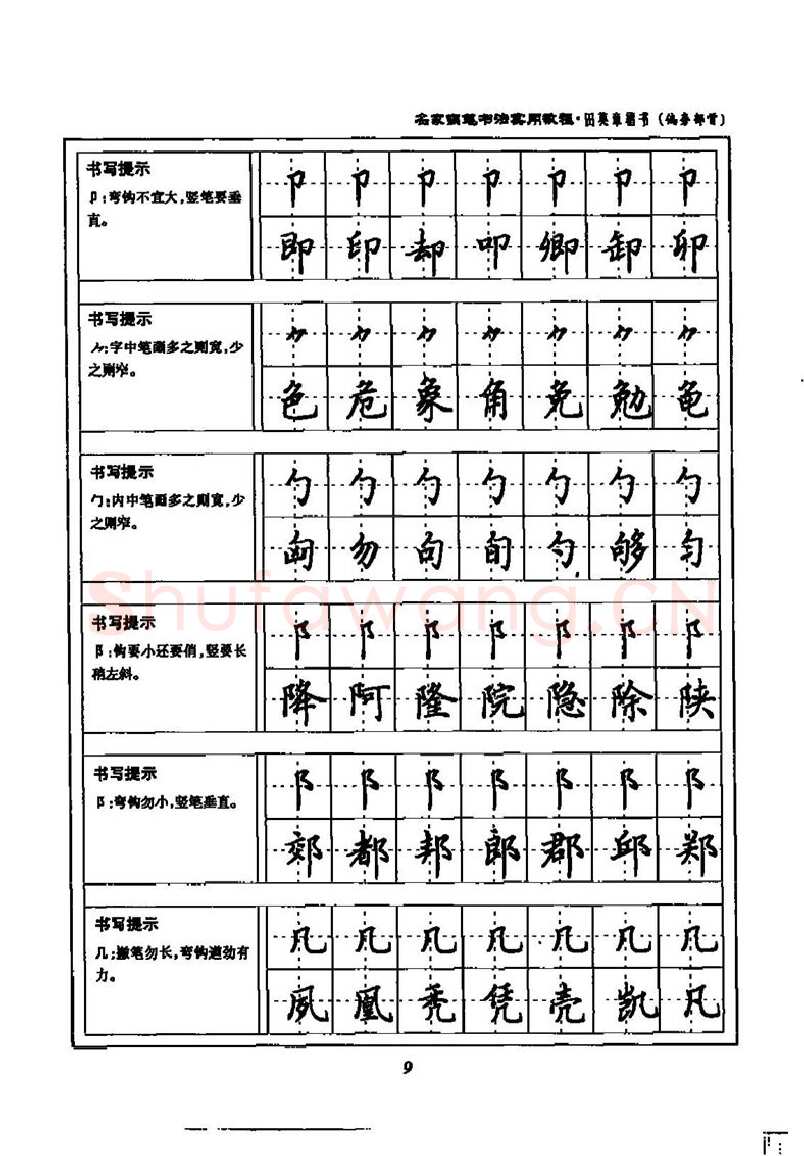 名家硬笔书法实用教程·田英章楷书(偏旁部首)
书写提示
卩:弯钩不宜大,竖笔要垂
直。
卩 卩 卩 卩 卩 卩 卩
即 印 却 叩 卿 卸 卯
书写提示
⺈:字中笔画多之则宽,少
之则窄。
⺈ ⺈ ⺈ ⺈ ⺈ ⺈ ⺈
色 危 象 角 免 勉 龟
书写提示
勹:内中笔画多之则宽,少
之则窄。
勺 勺 勺 勺 勺 勺 勺
匈 勿 句 旬 勺 够 匀
书写提示
阝:钩要小还要俏,竖要长
稍左斜。
阝 阝 阝 阝 阝 阝 阝
降 阿 隆 院 隐 除 陕
书写提示
阝:弯钩勿小,竖笔垂直。
阝 阝 阝 阝 阝 阝 阝
郊 都 邦 郎 郡 邱 郑
书写提示
几:撇笔勿长,弯钩遒劲有
力。
凡 凡 凡 凡 凡 凡 凡
夙 凰 秃 凭 壳 凯 凡
shufawang.CN
9